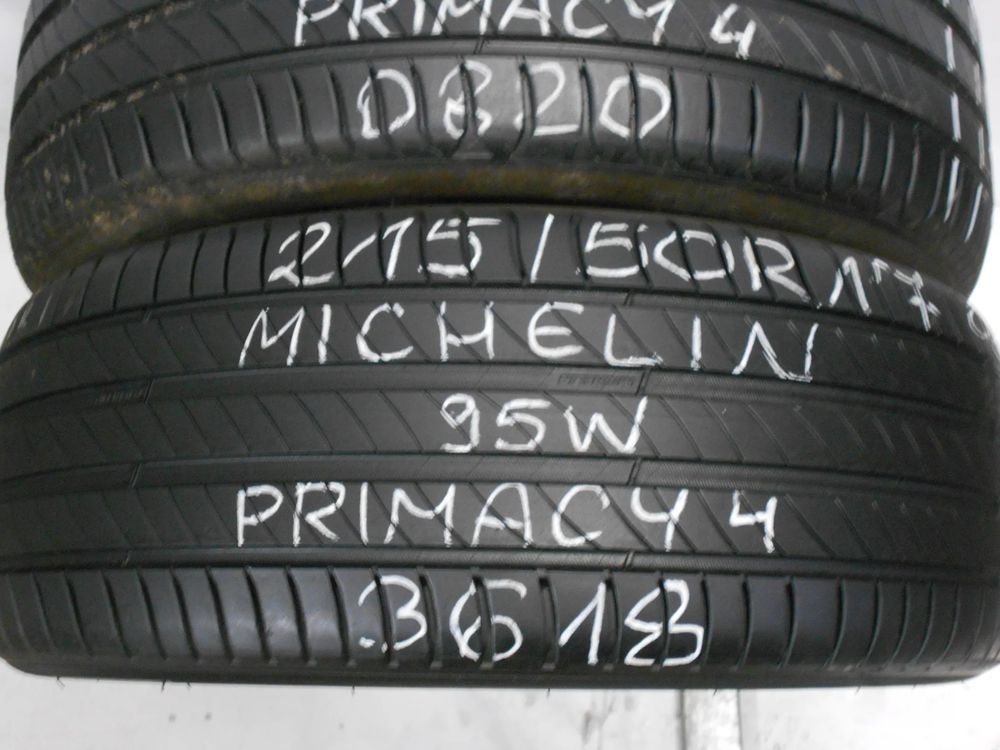 PRIMACY 4
0820
215/50R17
MICHELIN
95W
PRIMACY 4
3618